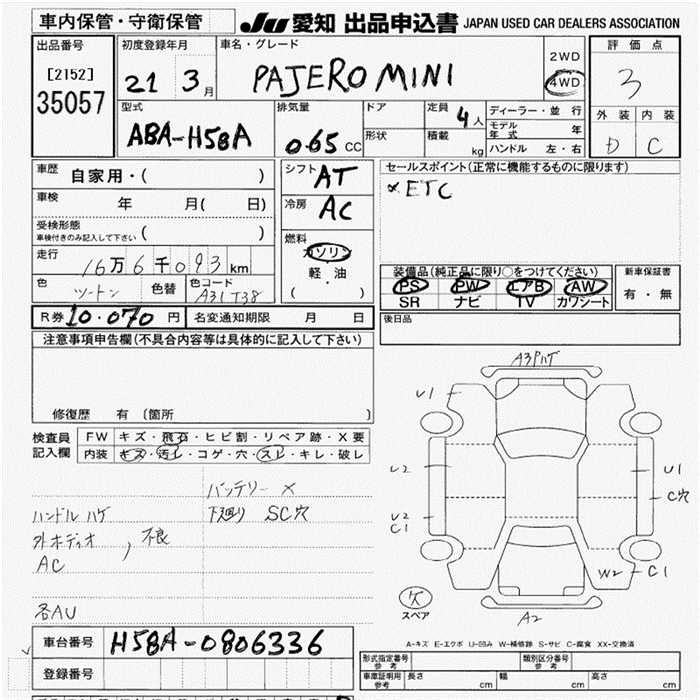 車内保管・守衛保管
JU 愛知 出品申込書 JAPAN USED CAR DEALERS ASSOCIATION
出品番号
[2152]
35057
初度登録年月
21 3月
車名・グレード
PAJERO MINI
2WD
4WD
評価点
3
外装 内装
D C
型式
ABA-H58A
排気量
0.65 CC
ドア
形状
定員 4人
積載 kg
ディーラー・並行
モデル年式 年
ハンドル 左・右
車歴 自家用・( )
車検 年 月( 日)
受検形態
車検付きのみ記入して下さい ( )
走行 16万6千093km
色 ツートン 色替 色コード A31 T38
シフト AT
冷房 AC
燃料
ガソリン
軽・油
( )
セールスポイント(正常に機能するものに限ります)
× ETC
装備品(純正品に限り○をつけてください)
PS PW エアB AW
SR ナビ TV カワシート
新車保証書
有・無
R券 10.070円 名変通知期限 月 日
後日品
注意事項申告欄(不具合内容等は具体的に記入して下さい)
修復歴 有 〔箇所 〕
検査員記入欄
FW キズ・飛石・ヒビ割・リペア跡・X要
内装 キズ・汚レ・コゲ・穴・スレ・キレ・破レ
バッテリー ×
ハンドル ハゲ
下廻り SC穴
外オーディオ , 不良
AC
各AU
A3Pハゲ
U1
U2
U1
C穴
U2
C1
W2 C1
欠
スペア
A2
A-キズ E-エクボ U-凹み W-補修跡 S-サビ C-腐食 XX-交換済
車台番号 H58A-0806336
登録番号
形式指定番号 参考
類別区分番号 参考
車庫証明用 参考
長さ cm 幅 cm 高さ cm